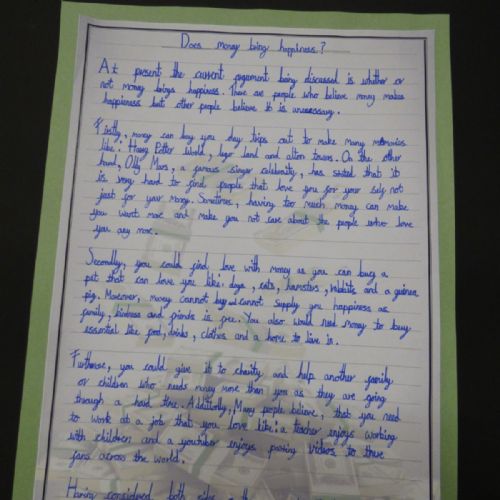 Does money bring happiness?
At present the current argument being discussed is whether or
not money brings happiness. There are people who believe money makes
happieness but other people believe it is unnessary.
Firstly, money can buy you day trips out to make many memories
like: Harry Potter World, lego land and alton towers. On the other
hand, Olly Murs, a famous singer celebraity, has stated that it
is very hard to find people that love you for your self not
just for your money. Sometimes, having too much money can make
you want more and make you not care about the people who love
you any more.
Secondly, you could find love with money as you can buy a
pet that can love you like: dogs, cats, hamsters, rabbits and a guinea
pig. Moreover, money cannot buy and cannot supply you happiness as
family, kindness and friends is free. You also would need money to buy
essential like food, drinks, clothes and a home to live in.
Furthmore, you could give it to charity and help another family
or children who needs money more than you as they are going
through a hard time. Additionally, Many people believe, that you need
to work at a job that you love like: a teacher enjoys working
with children and a youtuber enjoys posting videos to there
fans across the world.
Having considered both sides